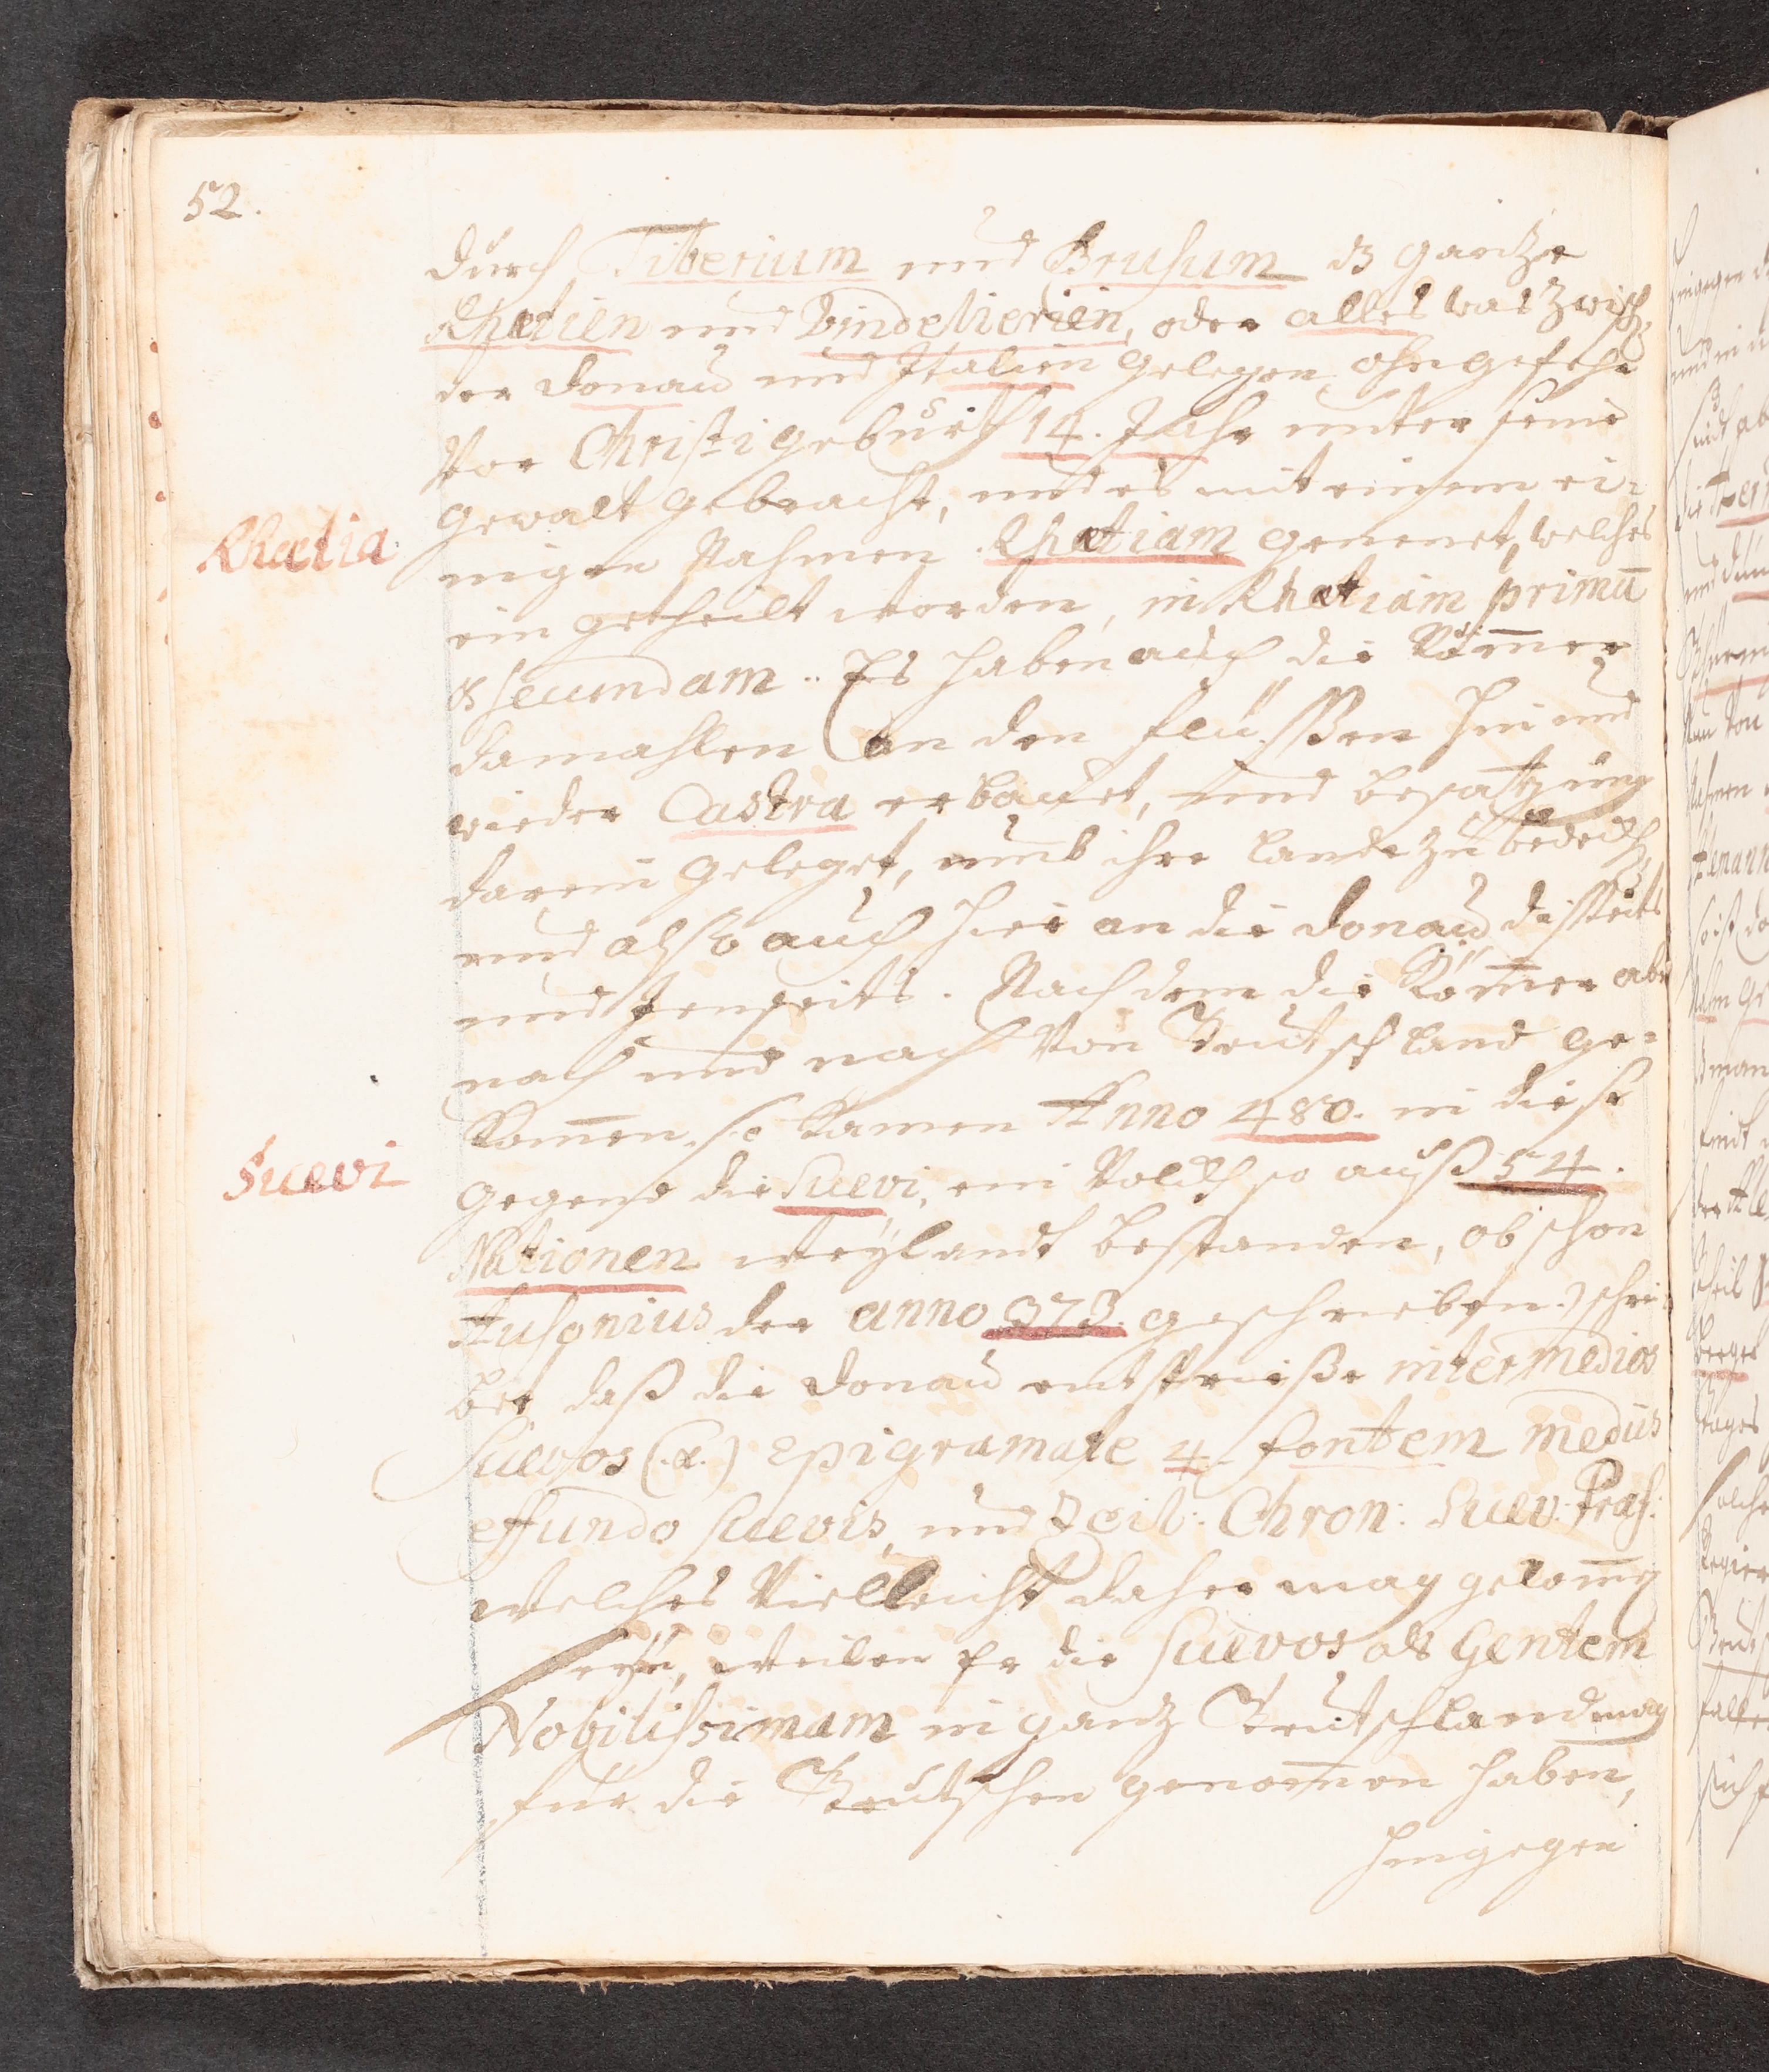 52.
durch Tiberium und Drusum dz gantze
Rhætien und Vindelicien, oder alles was zwisch
der Donau und Italien gelegen, ohngefehr
Vor Christi geburth 14. Jahr unter seine
gewalt gebracht, und es mit einem ei-
nigen Nahmen Rhætiam genenet, welches
Rhætia
ein getheilt worden, in Rhætiam primā
& secundam. Es haben auch die Röm̄er
damahlen an den Flüssen hin und
wieder Castra erbauet, und besatzung
darein geleget, umb ihre Lande zu bedeckh
und also auch hier an die Donau disseits
und Jenseits. Nach dem die Röm̄er aber
nach und nach Von Teutschland ge-
Kom̄en, so kamen Anno 480. in diese
gegend die Suevi, ein Volckh so auß 54.
Suevi
Nationen weyland bestanden, obschon
Ausonius der anno 373. geschrieben, schrei-
bet daß die Donau entspriesse intermedios
Suevos (.a.) Epigramate 4. fontem mediis
effundo Suevis, und Zeil: Chron: Suev: Præf:
welches Vielleicht daher mag gekom̄en
seyn, weilen Er die Suevos als Gentem
Nobilissimam in ganz Teutschland mag
für die Teutschen genom̄en haben,
hingegen